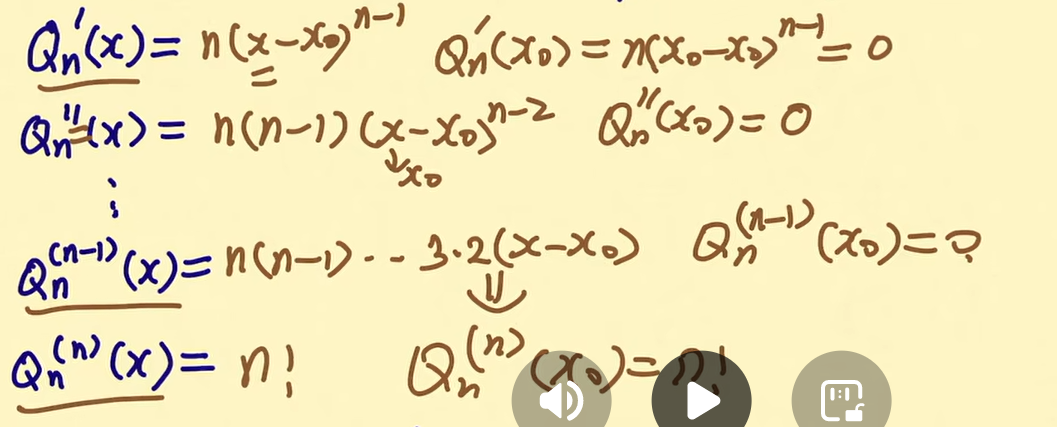 Qₙ'(x) = n(x-x₀)ⁿ⁻¹ Qₙ'(x₀) = n(x₀-x₀)ⁿ⁻¹ = 0
Qₙ''(x) = n(n-1)(x-x₀)ⁿ⁻² Qₙ''(x₀) = 0
↓x₀
⋮
Qₙ⁽ⁿ⁻¹⁾(x) = n(n-1)⋅⋅⋅3⋅2(x-x₀) Qₙ⁽ⁿ⁻¹⁾(x₀) = 0
Qₙ⁽ⁿ⁾(x) = n! Qₙ⁽ⁿ⁾(x₀) = n!